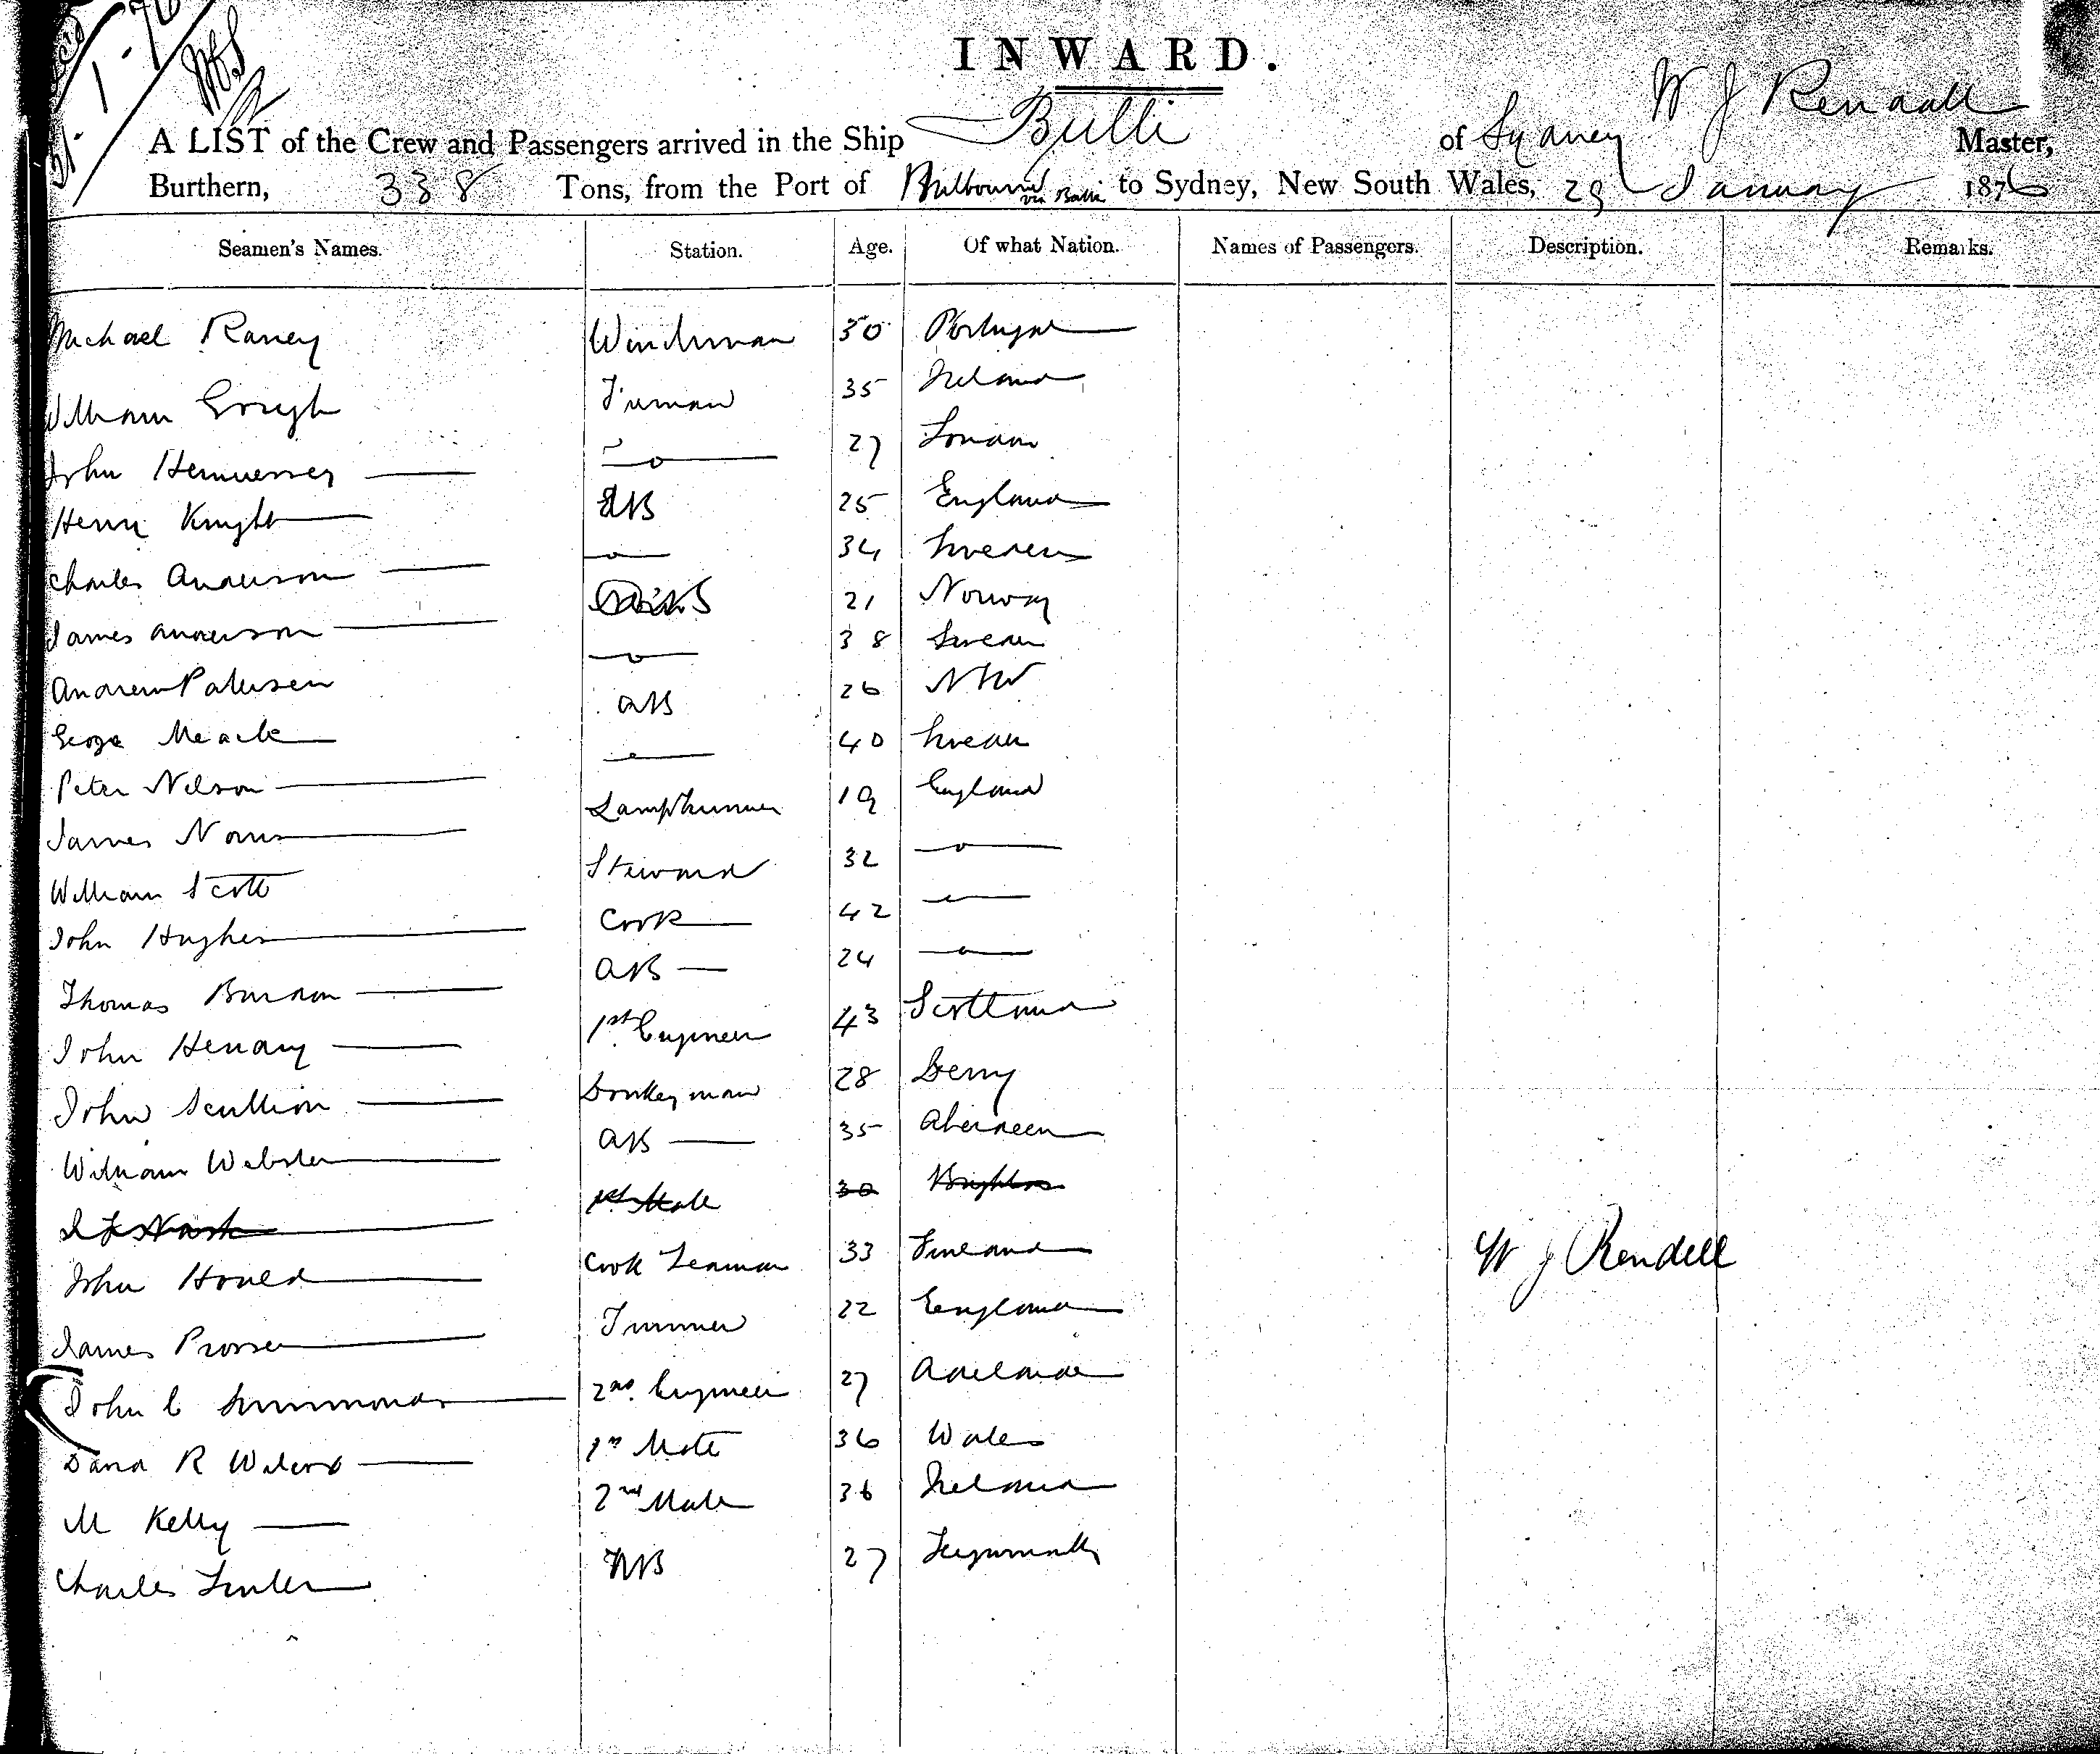 INWARD.
A LIST of the Crew and Passengers arrived in the Ship Bulli of Sydney W J Rendall Master,
Burthern, 338 Tons, from the Port of Melbourne via to Sydney, New South Wales, 29 January 1876
Seamen's Names. Station. Age. Of what Nation. Names of Passengers. Description. Remarks.
Michael Raney Winchman 30 Portugal
William Gough Fireman 35 Ireland
John Hennessey —o— 27 London
Henri Knight AB 25 England
Charles Anderson —o— 34 Sweden
James Anderson 21 Norway
Andrew Patersen —o— 38 Sweden
George AB 26 NSW
Peter Nelson —o— 40 Sweden
James Norris Lamptrimmer 19 England
William Scott Steward 32 —o—
John Hughes Cook 42 —o—
Thomas AB 24 —o—
John 1st Engineer 43 Scotland
John Scullion Donkeyman 28 Derry
William Webster AB 35 Aberdeen
Nash 1st Mate 30 Brighton
John Cook Seaman 33 Finland
James Prosser Trimmer 22 England
John C Simmonds 2nd Engineer 27 Adelaide
David R 1st Mate 36 Wales
M Kelly 2nd Mate 36 Ireland
Charles AB 27
W J Rendell